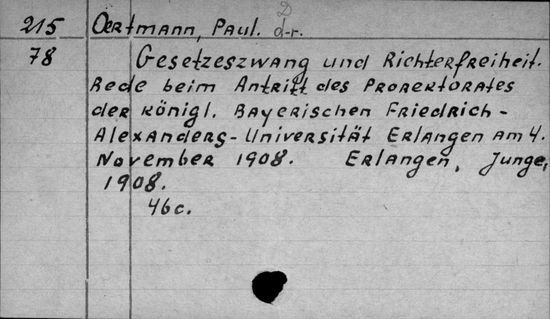 215 Oertmann, Paul. D d-r.
78 Gesetzeszwang und Richterfreiheit.
Rede beim Antritt des Prorektorates
der Königl. Bayerischen Friedrich-
Alexanders-Universität Erlangen am 4.
November 1908. Erlangen, Junge,
1908.
46 c.